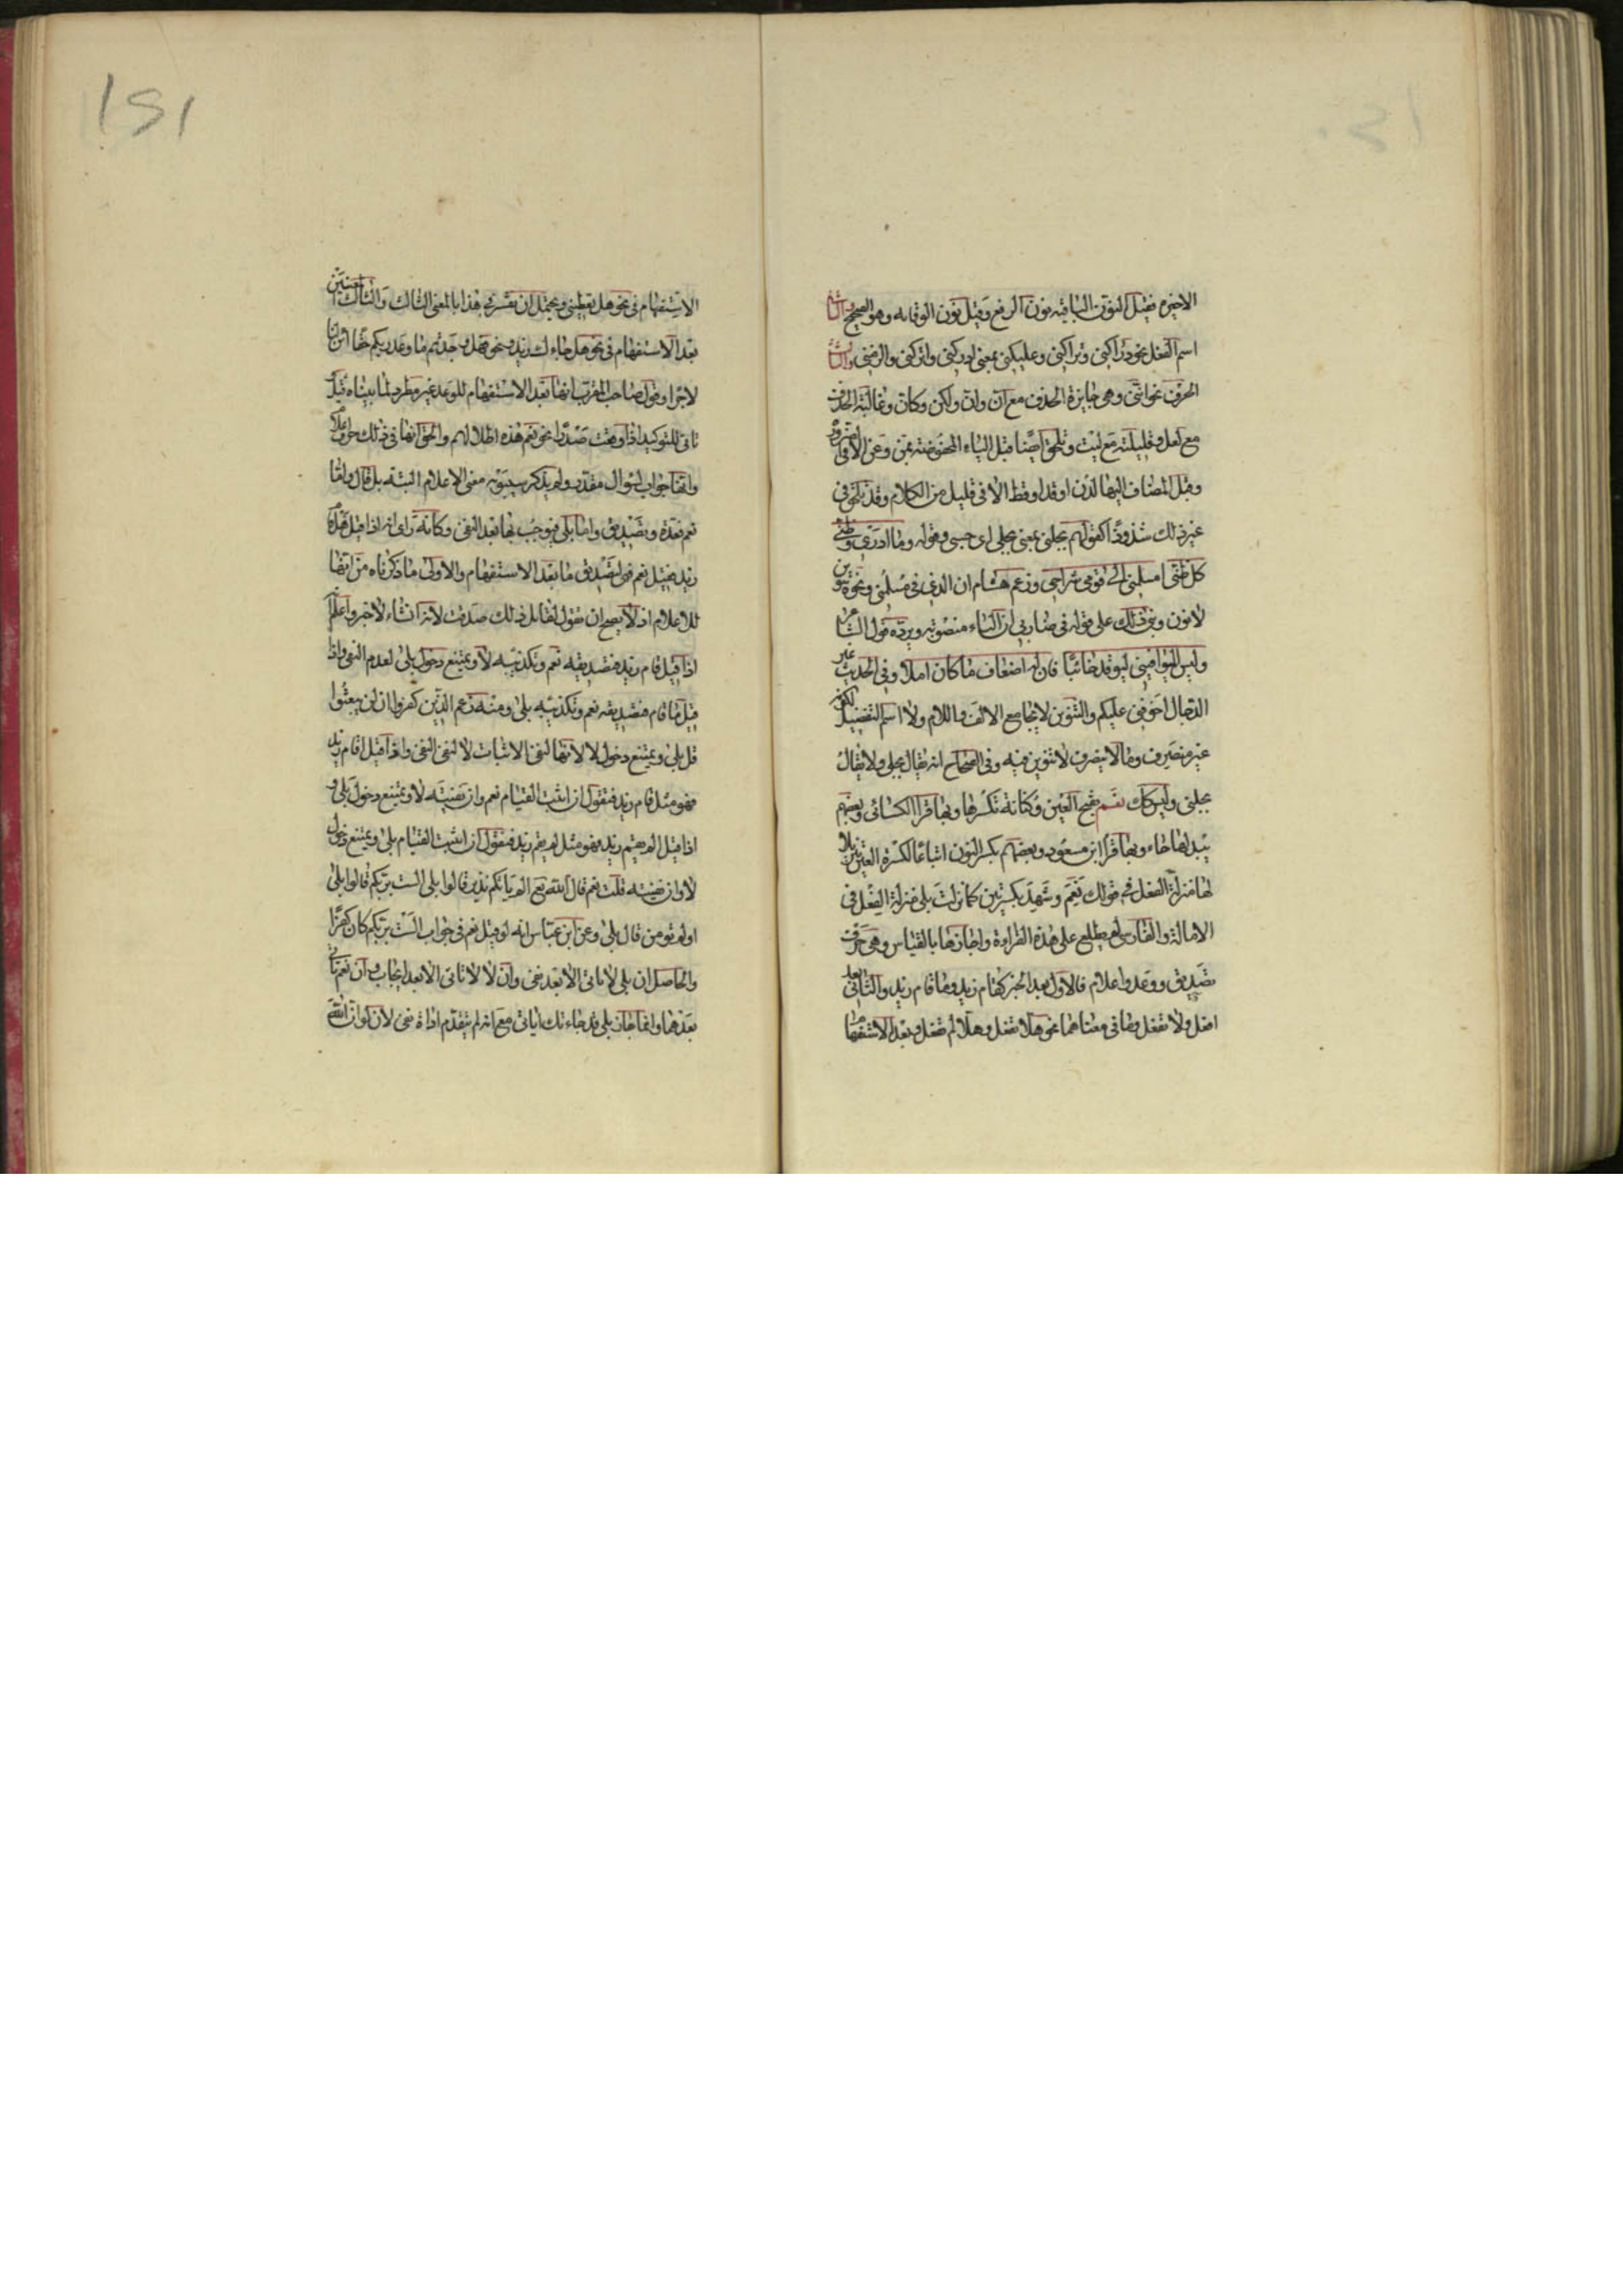 الاخيره فقيل النون الباقيه نون الرفع وقيل نون الوقايه وهو الصحيح والثانى
اسم الفعل نحو دراكنى وتراكنى وعليكنى بمعنى ادركنى واتركنى والزمنى والثالث
الحرف نحو اننى وهى جايزة الحذف مع ان وان ولكن وكان وغالبة الحذف
مع لعل وقليلته مع ليت وتلحق ايضا قبل الياء المخفوضة بمن وعن الا فى الضرورة
وقبل المضاف اليها لدن او قد او قط الا فى قليل من الكلام وقد تلحق فى
غير ذلك شذوذا كقولهم بجلنى بمعنى بجلى اى حسبى وقوله وما ادرى وظنى
كل ظنى امسلمنى الى قومى شراحى وزعم هشام ان الذى فى مسلمنى ونحوه تنوين
لا نون وبنى ذلك على قوله فى ضاربى ان الياء منصوبة ويرده قول الشاعر
وليس الموافينى ليوفد خائبا فان له اضعاف ما كان املا وفى الحديث غير
الدجال اخوفنى عليكم والتنوين لا يجامع الالف واللام ولا اسم التفضيل لكونه
غير منصرف وما لا ينصرف لا تنوين فيه وفى الصحاح انه يقال بجلى ولا يقال
بجلنى وليس كك نعم بفتح العين وكنانة تكسرها وبها قرا الكسائى وبعضهم
يبدلها حاء وبها قرا ابن مسعود وبعضهم بكسر النون اتباعا لكسرة العين تنزيلا
لها منزلة الفعل فى قولك نعم وشهد بكسرتين كما نزلت بلى منزلة الفعل فى
الامالة والفارسى لم يطلع على هذه القراءة واجازها بالقياس وهى حرف
تصديق ووعد واعلام فالاول بعد الخبر كقام زيد وما قام زيد والثانى بعد
افعل ولا تفعل وما فى معناهما نحو هلا تفعل وهلا لم تفعل وبعد الاستفهام
١٢١
الاستفهام فى نحو هل تعطينى ويحتمل ان تفسر فى هذا بالمعنى الثالث والثالث
بعد الاستفهام فى نحو هل جاءك زيد ونحو فهل وجدتم ما وعد ربكم حقا ائن لنا
لاجرا وقول صاحب المقرب انها بعد الاستفهام للوعد غير مطرد لما بيناه قبل
تاتى للتوكيد اذا وقعت صدرا نحو نعم هذه اطلالهم والحق انها فى ذلك حرف اعلام
وانها جواب لسؤال مقدر ولم يذكر سيبويه معنى الاعلام البتة بل قال واما
نعم فعدة وتصديق واما بلى فيوجب بها بعد النفى وكانه راى انه اذا قيل هل قام
زيد فقيل نعم فهى لتصديق ما بعد الاستفهام والاولى ما ذكرناه من انها
للاعلام اذ لا يصح ان تقول لقائل ذلك صدقت لانه انشاء لا خبر واعلم
اذا قيل قام زيد فتصديقه نعم وتكذيبه لا ويمتنع دخول بلى لعدم النفى واذا
قيل ما قام فتصديقه نعم وتكذيبه بلى ومنه زعم الذين كفروا ان لن يبعثوا
قل بلى ويمتنع دخول لا لانها لنفى الاثبات لا لنفى النفى واذا قيل اقام زيد
فهو مثل قام زيد فتقول ان اثبت القيام نعم وان نفيته لا ويمتنع دخول بلى و
اذا قيل الم يقم زيد فهو مثل لم يقم زيد فتقول ان اثبت القيام بلى ويمتنع دخول
لا وان نفيته قلت نعم قال الله تع الم ياتكم نذير قالوا بلى الست بربكم قالوا بلى
اولم تومن قال بلى وعن ابن عباس انه لو قيل نعم فى جواب الست بربكم كان كفرا
والحاصل ان بلى لا تاتى الا بعد نفى وان لا لا تاتى الا بعد ايجاب وان نعم تاتى
بعدهما وانما جاز بلى قد جاءتك اياتى مع انه لم يتقدم اداة نفى لان لو ان الله